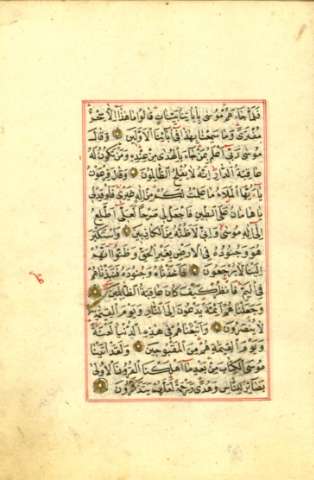 فَلَمَّا جَاءَهُمْ مُوسَى بِآيَاتِنَا بَيِّنَاتٍ قَالُوا مَا هَذَا إِلَّا سِحْرٌ
مُفْتَرًى وَمَا سَمِعْنَا بِهَذَا فِي آبَائِنَا الْأَوَّلِينَ وَقَالَ
مُوسَى رَبِّي أَعْلَمُ بِمَنْ جَاءَ بِالْهُدَى مِنْ عِنْدِهِ وَمَنْ تَكُونُ لَهُ
عَاقِبَةُ الدَّارِ إِنَّهُ لَا يُفْلِحُ الظَّالِمُونَ وَقَالَ فِرْعَوْنُ
يَا أَيُّهَا الْمَلَأُ مَا عَلِمْتُ لَكُمْ مِنْ إِلَهٍ غَيْرِي فَأَوْقِدْ لِي
يَا هَامَانُ عَلَى الطِّينِ فَاجْعَلْ لِي صَرْحًا لَعَلِّي أَطَّلِعُ
إِلَى إِلَهِ مُوسَى وَإِنِّي لَأَظُنُّهُ مِنَ الْكَاذِبِينَ وَاسْتَكْبَرَ
هُوَ وَجُنُودُهُ فِي الْأَرْضِ بِغَيْرِ الْحَقِّ وَظَنُّوا أَنَّهُمْ
إِلَيْنَا لَا يُرْجَعُونَ فَأَخَذْنَاهُ وَجُنُودَهُ فَنَبَذْنَاهُمْ
فِي الْيَمِّ فَانْظُرْ كَيْفَ كَانَ عَاقِبَةُ الظَّالِمِينَ
وَجَعَلْنَاهُمْ أَئِمَّةً يَدْعُونَ إِلَى النَّارِ وَيَوْمَ الْقِيَمَةِ
لَا يُنْصَرُونَ وَأَتْبَعْنَاهُمْ فِي هَذِهِ الدُّنْيَا لَعْنَةً
وَيَوْمَ الْقِيَمَةِ هُمْ مِنَ الْمَقْبُوحِينَ وَلَقَدْ آتَيْنَا
مُوسَى الْكِتَابَ مِنْ بَعْدِ مَا أَهْلَكْنَا الْقُرُونَ الْأُولَى
بَصَائِرَ لِلنَّاسِ وَهُدًى وَرَحْمَةً لَعَلَّهُمْ يَتَذَكَّرُونَ